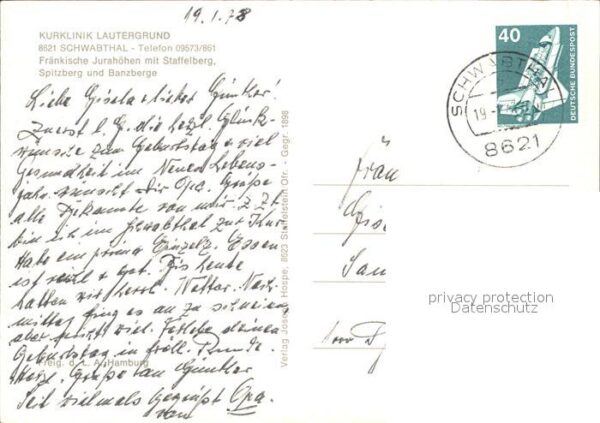 19.1.78
KURKLINIK LAUTERGRUND
8621 SCHWABTHAL - Telefon 09573/861
Fränkische Jurahöhen mit Staffelberg,
Spitzberg und Banzberge
Liebe Gisela + lieber Günther!
Zuerst l. G. die herzl. Glück-
wünsche zum Geburtstag + viel
Gesundheit im Neuen Lebens-
jahr wünscht Dir Opa. Grüße
alle Bekannte von mir. Z. Zt.
bin ich im Schwabthal zur Kur
Habe ein prima Einzelz. Essen
ist reichl + gut. Bis heute
hatten wir herrl. Wetter. Nach-
mittag fing es an zu schneien
aber nicht viel. Verlebe deinen
Geburtstag in fröhl. Runde.
Herzl. Grüße an Günther
Seit vielmals gegrüßt Opa.
von
Freig. d. L. A. Hamburg
Verlag Josef Hospe, 8623 Staffelstein Ofr. - Gegr. 1898
40
DEUTSCHE BUNDESPOST
SCHWABTHAL
19.
8621
Frau
Gise
San
privacy protection
Datenschutz